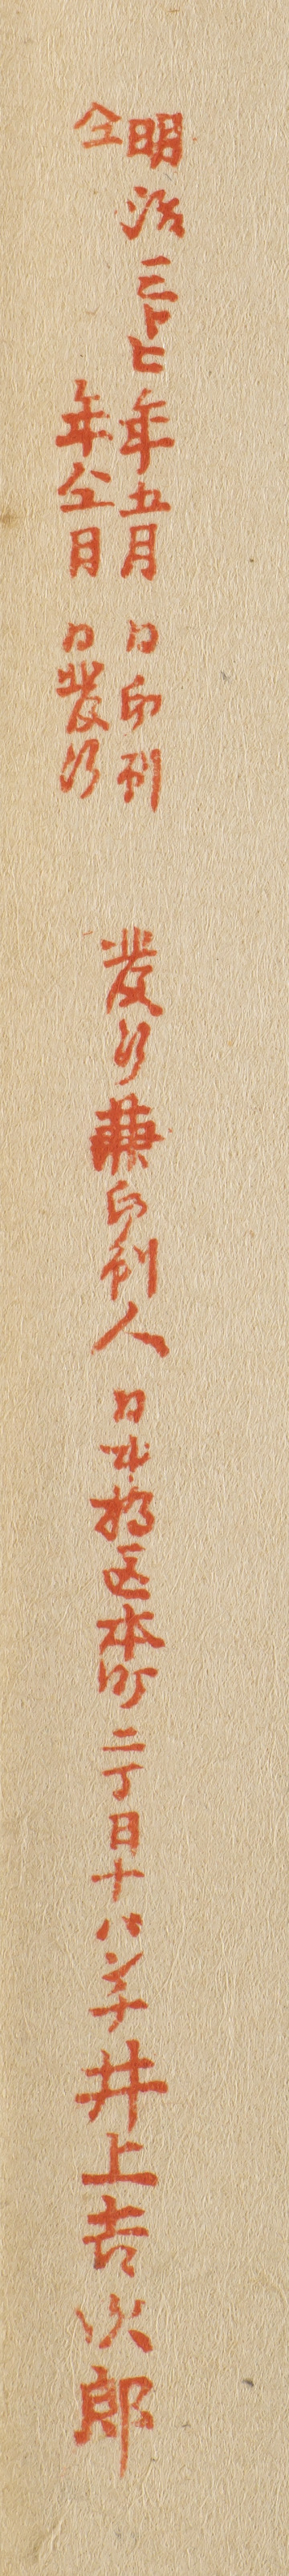 明治三十七年五月　日印刷
仝　年仝月　日發行
發行兼印刷人　日本橋区本町二丁目十八バンチ　井上吉次郎